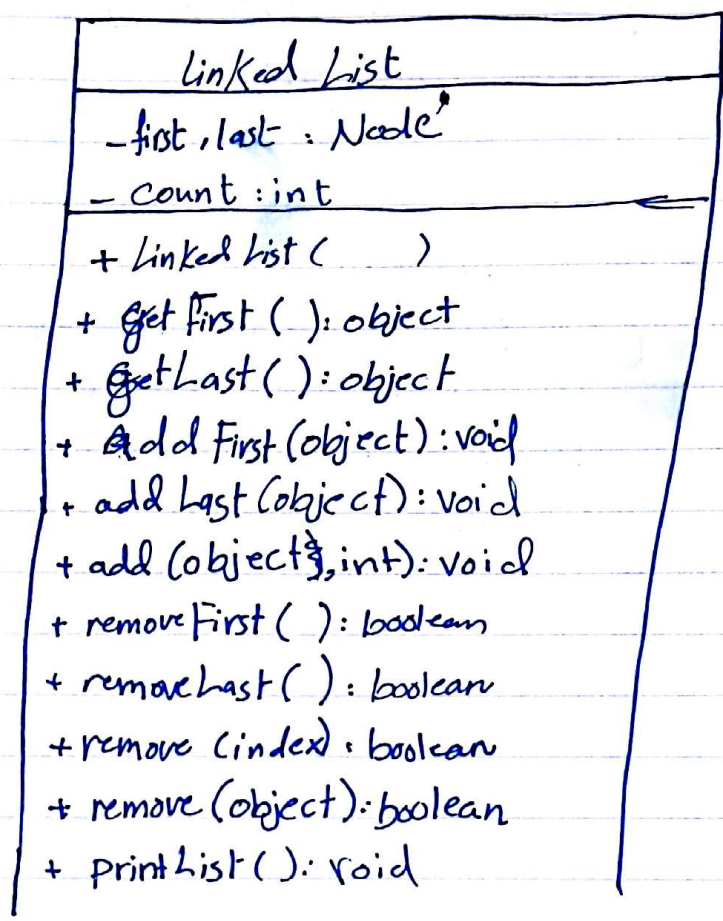 Linked List
- first, last : Node
- count : int
+ Linked List ( )
+ get First ( ) : object
+ getLast ( ) : object
+ Add First (object) : void
+ add Last (object) : void
+ add (object, int) : void
+ removeFirst ( ) : boolean
+ removeLast ( ) : boolean
+ remove (index) : boolean
+ remove (object) : boolean
+ printList ( ) : void